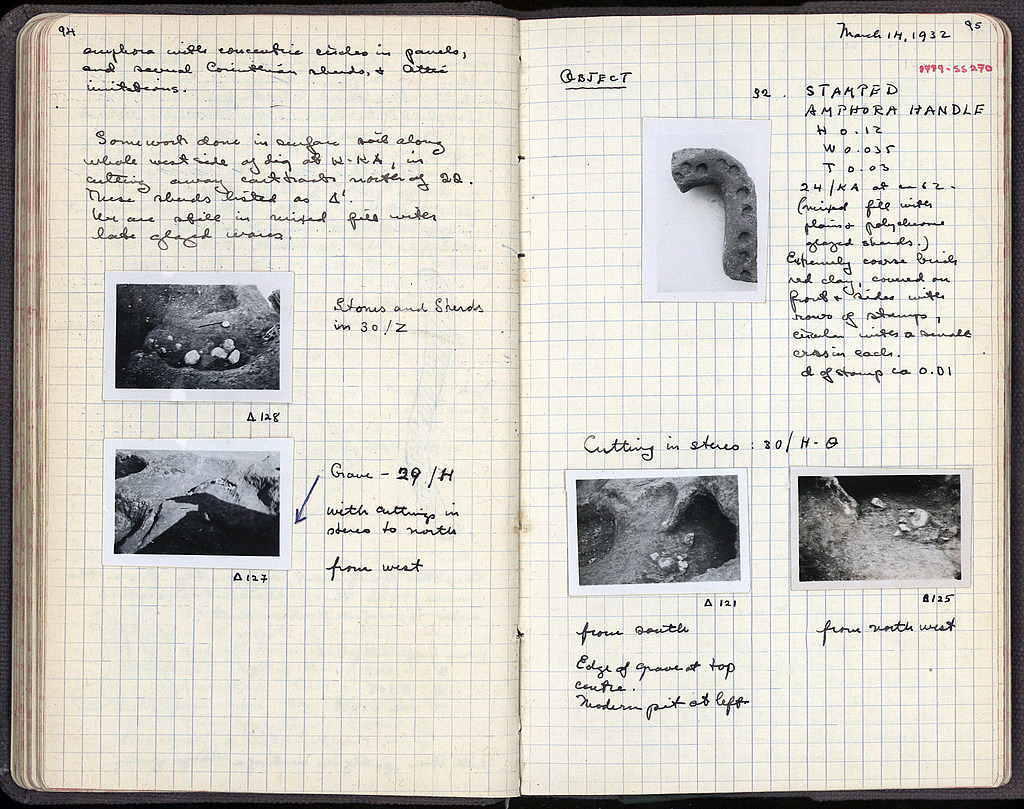 94
amphora with concentric circles in panels,
and several Corinthian sherds, & Attic
imitations.
Some work done in surface soil along
whole west side of dig at H-KA, in
cutting away cart tracks north of 22.
These sherds listed as Δ'.
We are still in mixed fill with
late glazed wares.
Stones and Sherds
in 30/Z
Δ 128
Grave - 29/H
with cuttings in
stereo to north
from west
Δ 127
March 14, 1932
95
OBJECT
SS 270
32. STAMPED
AMPHORA HANDLE
H 0.12
W 0.035
T 0.03
24/KA at ca 62-
(mixed fill with
plain & polychrome
glazed sherds.)
Extremely coarse brick
red clay, covered on
front & sides with
rows of stamps,
circular with a small
cross in each.
d of stamp ca 0.01
Cutting in stereo: 30/H-Θ
Δ 121
Δ125
from south
from north west
Edge of grave at top
centre.
Modern pit at left